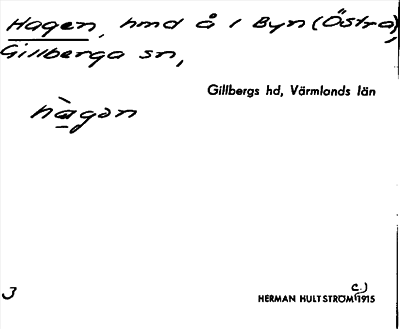 Hagen, hmd å 1 Byn (Östra),
Gillberga sn,
Gillbergs hd, Värmlands län
hà̱gon
3
HERMAN HULTSTRÖM (c.) 1915